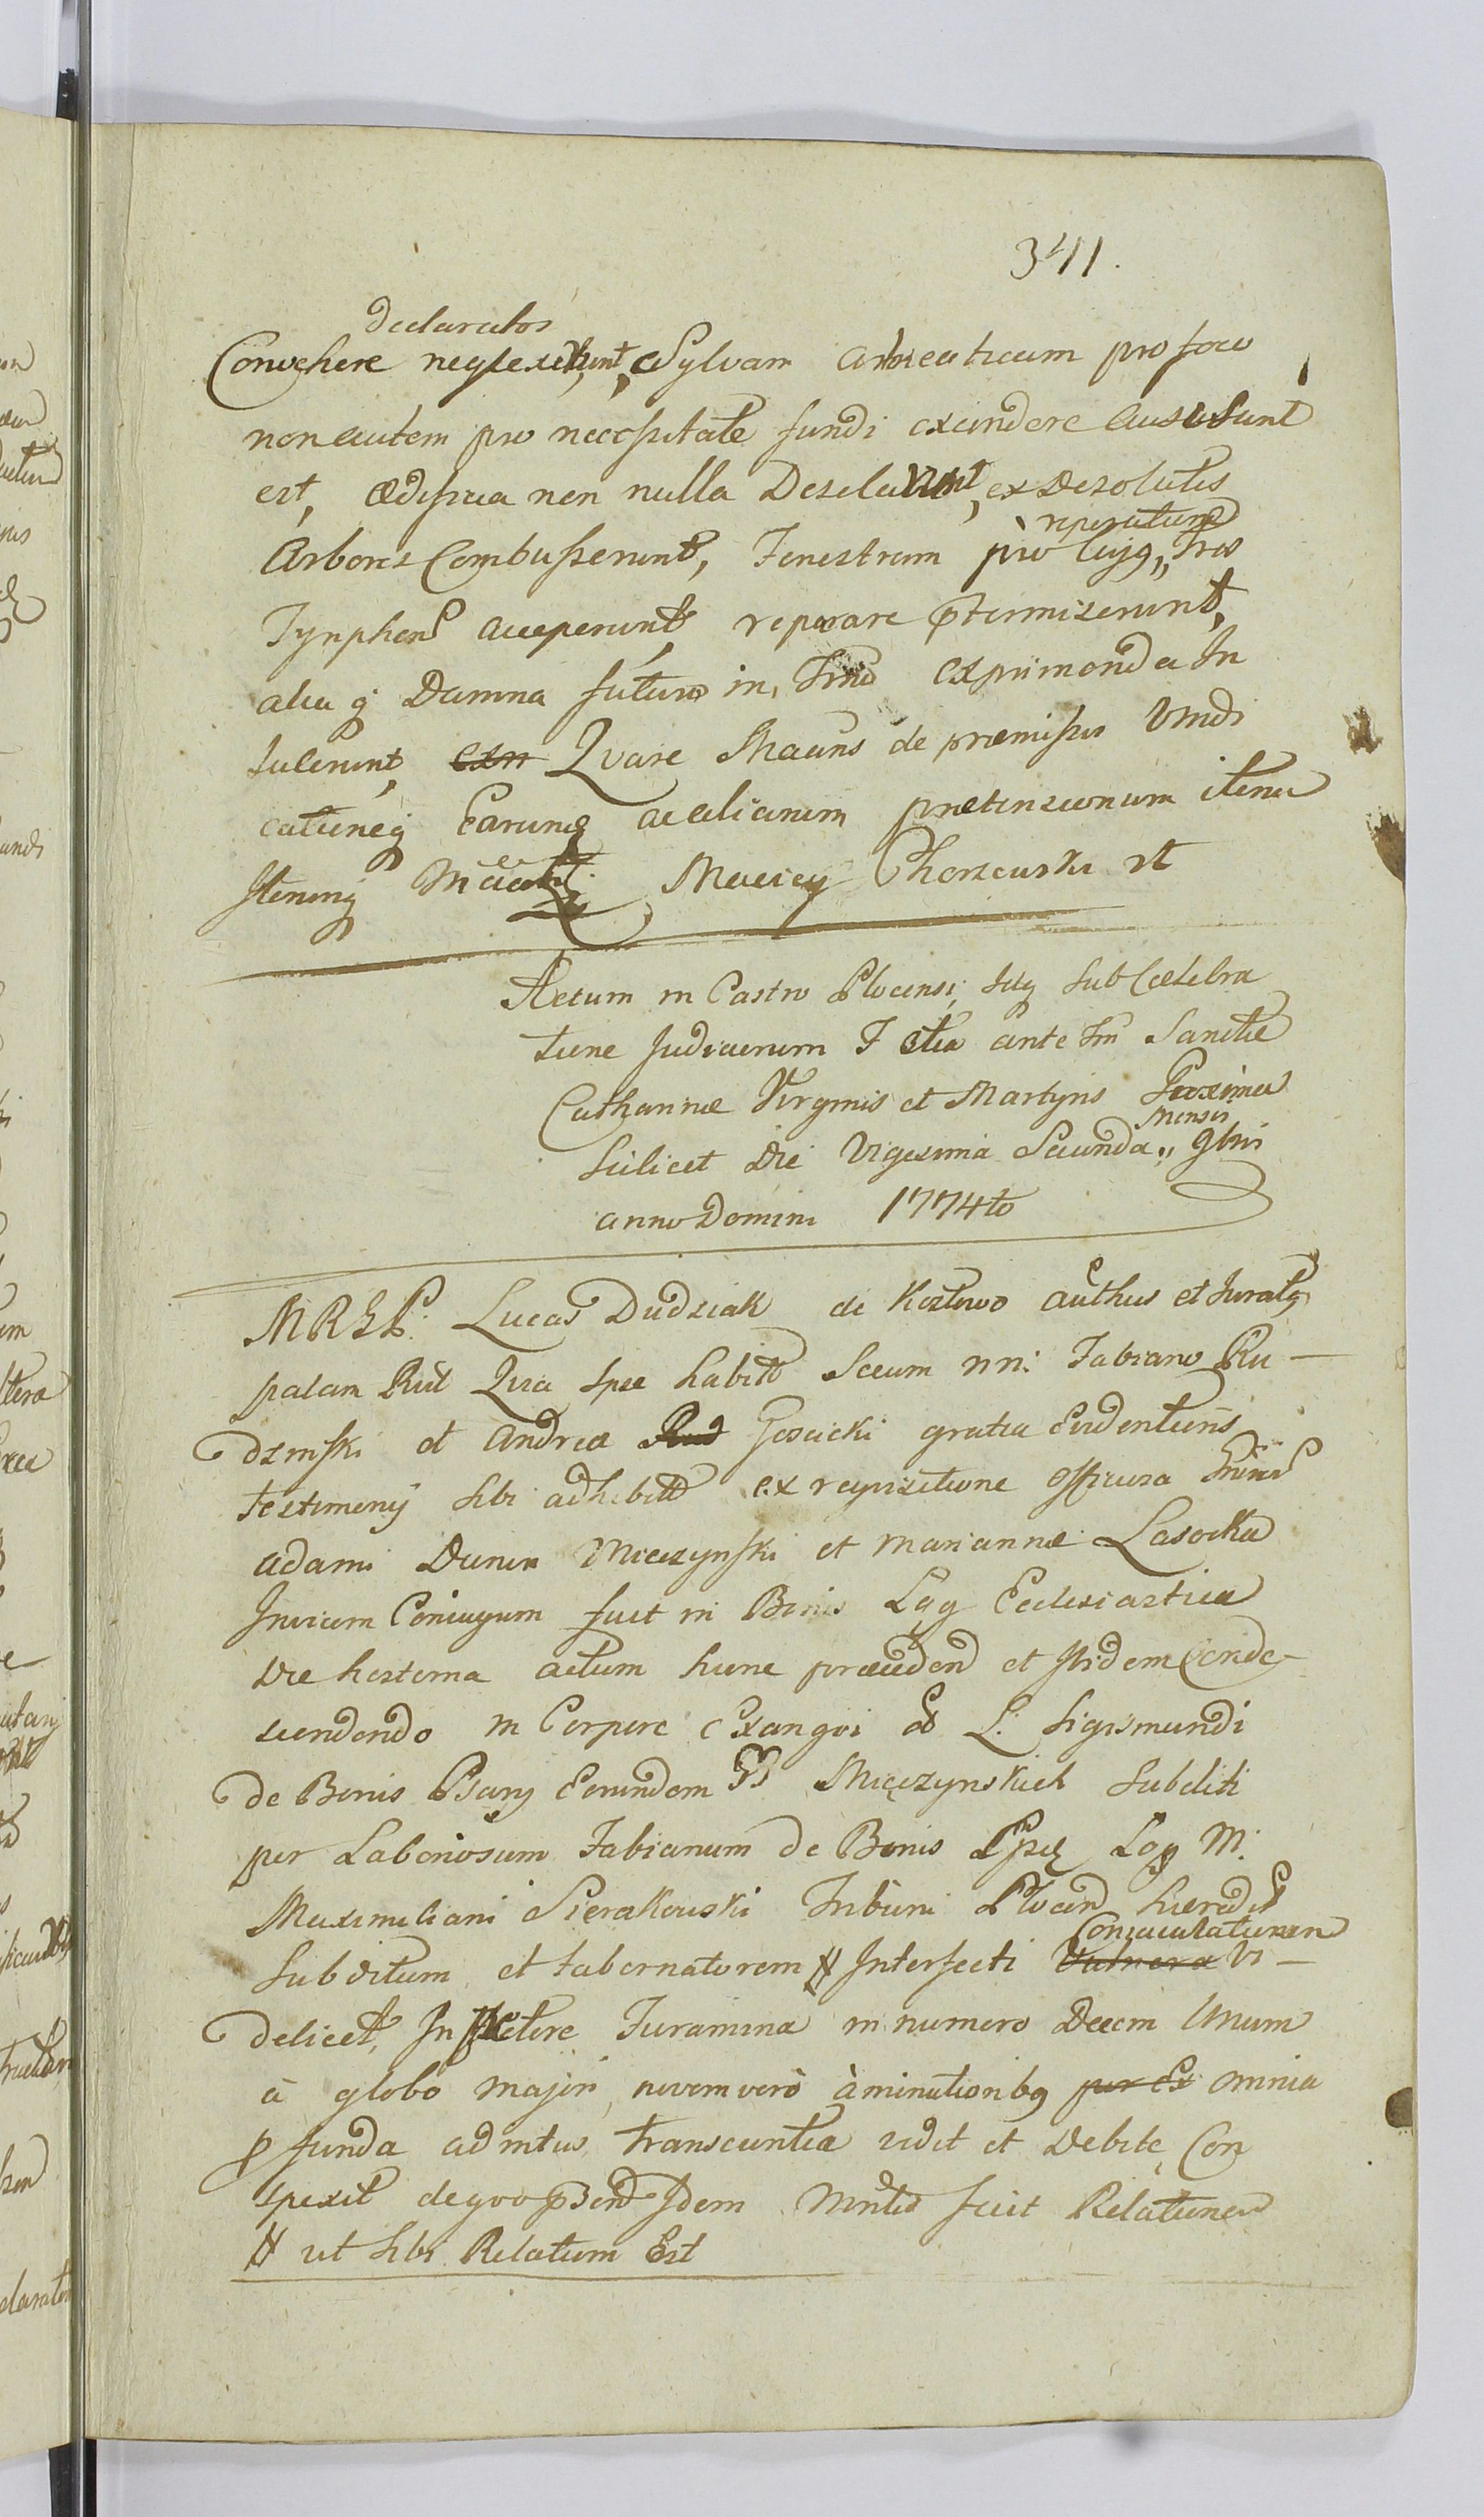 341.
declaratos
Convehere neglexerunt, Sylvam pro foco
non autem pro necessitate fundi exundere ausi sunt
est, ædificia non nulla Desolarunt, ex Desolatis
reperatione
Arbores Combusserunt, Fenestram pro cujq, Tres
Tynphens acceperunt reparare ptermiserunt,
alia q Damna futuro in Trno exprimenda In
tulerunt Qvare Maans de præmissis Vindi
cationeq Earumq actionum prætensionum iterum
Iteruq Maciey Chorzewski rt
Actum in Castro Plocensi, Sub Celebra
tione Judiciorum F Stia ante Fm Sanctæ
Catharinæ Virginis et Martyris Proxima
Mensis
Scilicet Die Vigesima Secunda 9bris
anno Domini 1774to
Lucas Dudziak de Kozlowo authus et Juratq
palam Rut Qvia Ipse habitt Secum nni: Fabiano Ru-
dzinski et Andrea Gosacki gratia Evidentioris
testimonij sibi adhibitt ex reqvisitione officiosa
Adami Dunin Miaczynski et Mariannæ Lasocka
Invicem Coniugum fuit in Bonis Lag Ecclesiastica
Die hesterna actum hunc præceden et Ibidem Conde-
scendendo in Corpore Exangvi L. Sigismundi
de Bonis Psary Eorundem Miączynskich Subditi
per Laboriosum Fabianum de Bonis Lag M:
Maximiliani Sierakowski Tribuni Plocen hæredis
Conjaculationem
Subditum et tabernatorem # Interfecti Vulnera Vi-
delicet, In Pectore Foramina in numero Decem Unum
à globo majori novem verò à minutioribq per Ex omnia
p funda ad intus transeuntia vidit et Debite Con
spexit deqvo psens Idem Mintis fecit Relationem
# ut sibi Relatum Est